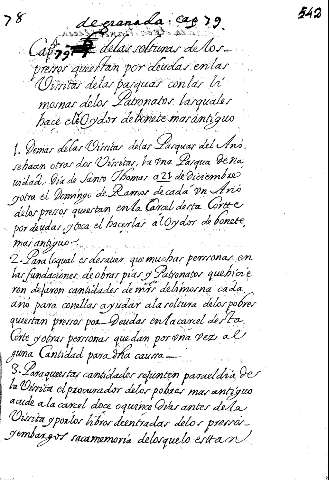 78 de granada. cap 79. 542
Cap. 79 de las solturas de los
presos questan por deudas en las
Visitas de las pasquas con las li
mosnas de los Patronatos, las quales
hace el Oydor de bonete mas antiguo
1. Demas de las Visitas de las Pasquas del Año
se hacen otras dos Visitas, la una Pasqua de na
uidad, dia de Santo Thomas a 21 de diciembre
y otra el Domingo de Ramos de cada Un Año
de los presos questan en la Carcel desta Corte
por deudas, y toca el hacerlas al Oydor de bonete,
mas antiguo.
2. Para lo qual es de sauer, que muchas perssonas en
las fundaciones, de obras pias y Patronatos que hicie
ron dejaron cantidades de mrs de limosna cada
año para con ellas ayudar a la soltura de los pobres
questan presos por Deudas en la carcel desta
Corte y otras personas que dan por una vez al
guna Cantidad para dha caussa
3. Para questas cantidades se junten para el dia de
la Vissita el procurador de los pobres mas antiguo
acude a la carcel doce o quince dias antes de la
Vissita y por los libros de entradas de los pressos
y embargos saca memoria de los que lo estan